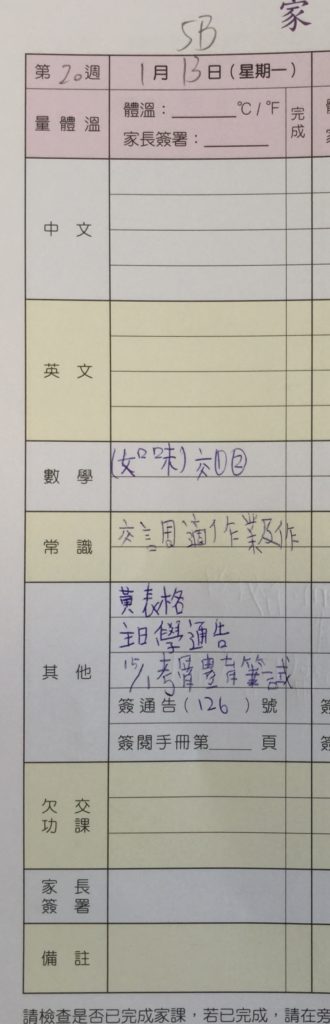 家
5B
第20週 1月13日(星期一)
量體溫 體溫:______℃/℉ 完成
家長簽署:______
中文
英文
數學 (如口味)交①②
常識 交言周適作業及作
其他 黃表格
主日學通告
15/1考
簽通告(126)號
簽閱手冊第____頁
欠交功課
家長簽署
備註
請檢查是否已完成家課,若已完成,請在旁